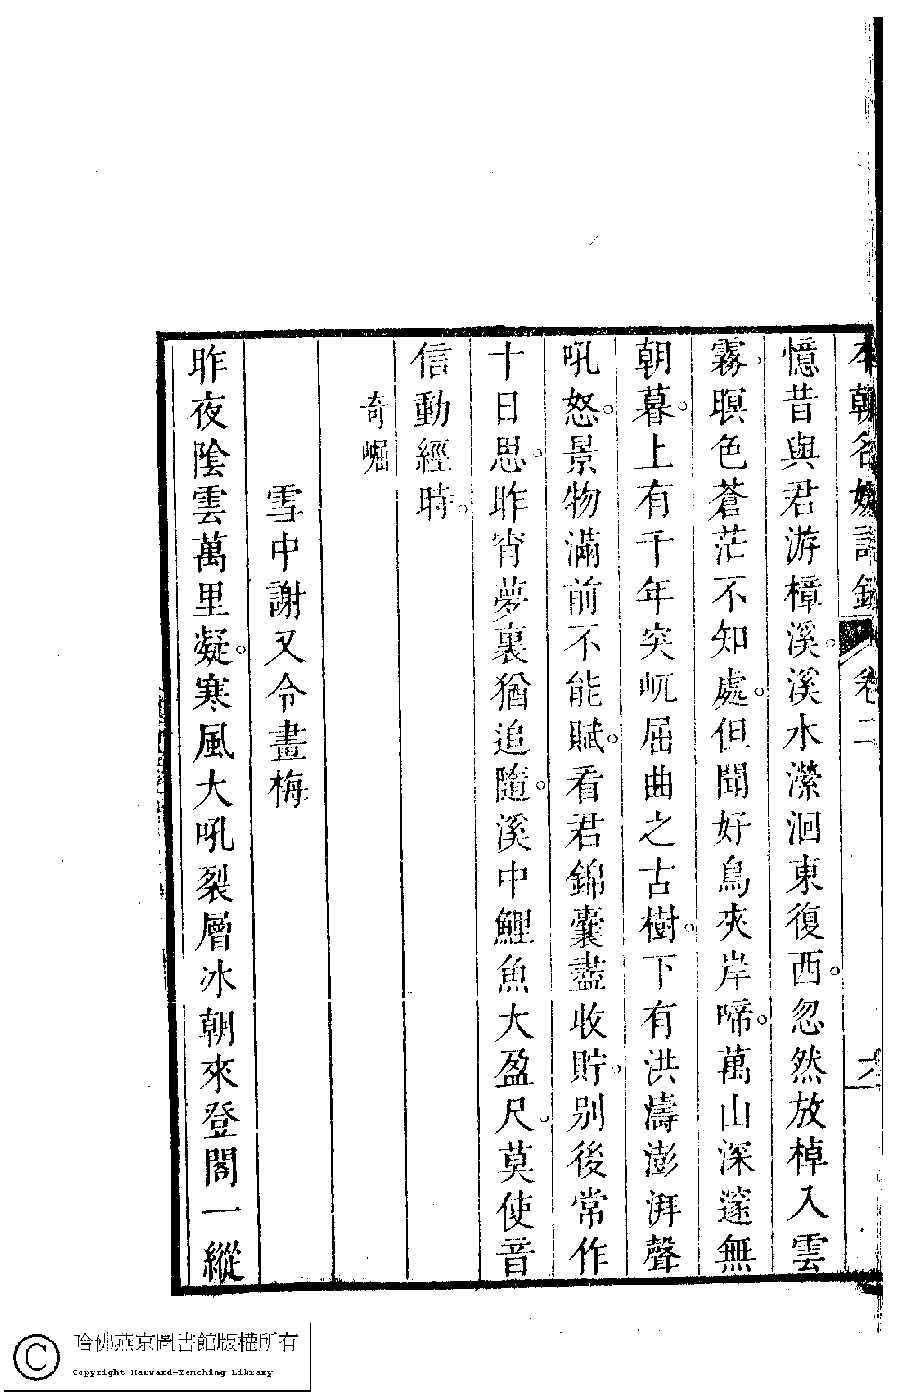 本朝名媛詩鈔 卷二 六
憶昔與君游樟溪。溪水瀠洄東復西。忽然放棹入雲
霧。暝色蒼茫不知處。但聞好鳥夾岸啼。萬山深邃無
朝暮。上有千年突屼屈曲之古樹。下有洪濤澎湃聲
吼怒。景物滿前不能賦。看君錦囊盡收貯。別後常作
十日思。昨宵夢裏猶追隨。溪中鯉魚大盈尺。莫使音
信動經時。
奇崛
雪中謝又令畫梅
昨夜陰雲萬里凝。寒風大吼裂層冰朝來登閣一縱
哈佛燕京圖書館版權所有
Copyright Harvard-Yenching Library